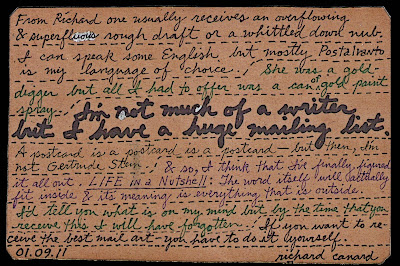 From Richard one usually receives an overflowing
& superfluous rough draft or a whittled down nub.
I can speak some English but mostly Postalwanto
is my language of choice./ She was a gold-
digger but all I had to offer was a can of gold paint
spray./ I'm not much of a writer
but I have a huge mailing list.
A postcard is a postcard is a postcard — but then, I'm
not Gertrude Stein./ & so, I think that I've finally figured
it all out. LIFE in a Nutshell: The word itself will actually
fit inside & its meaning is everything that is outside.
I'd tell you what is on my mind but by the time that you
receive this I will have forgotten./ If you want to re-
ceive the best mail art—you have to do it yourself.
01.09.11 richard canard